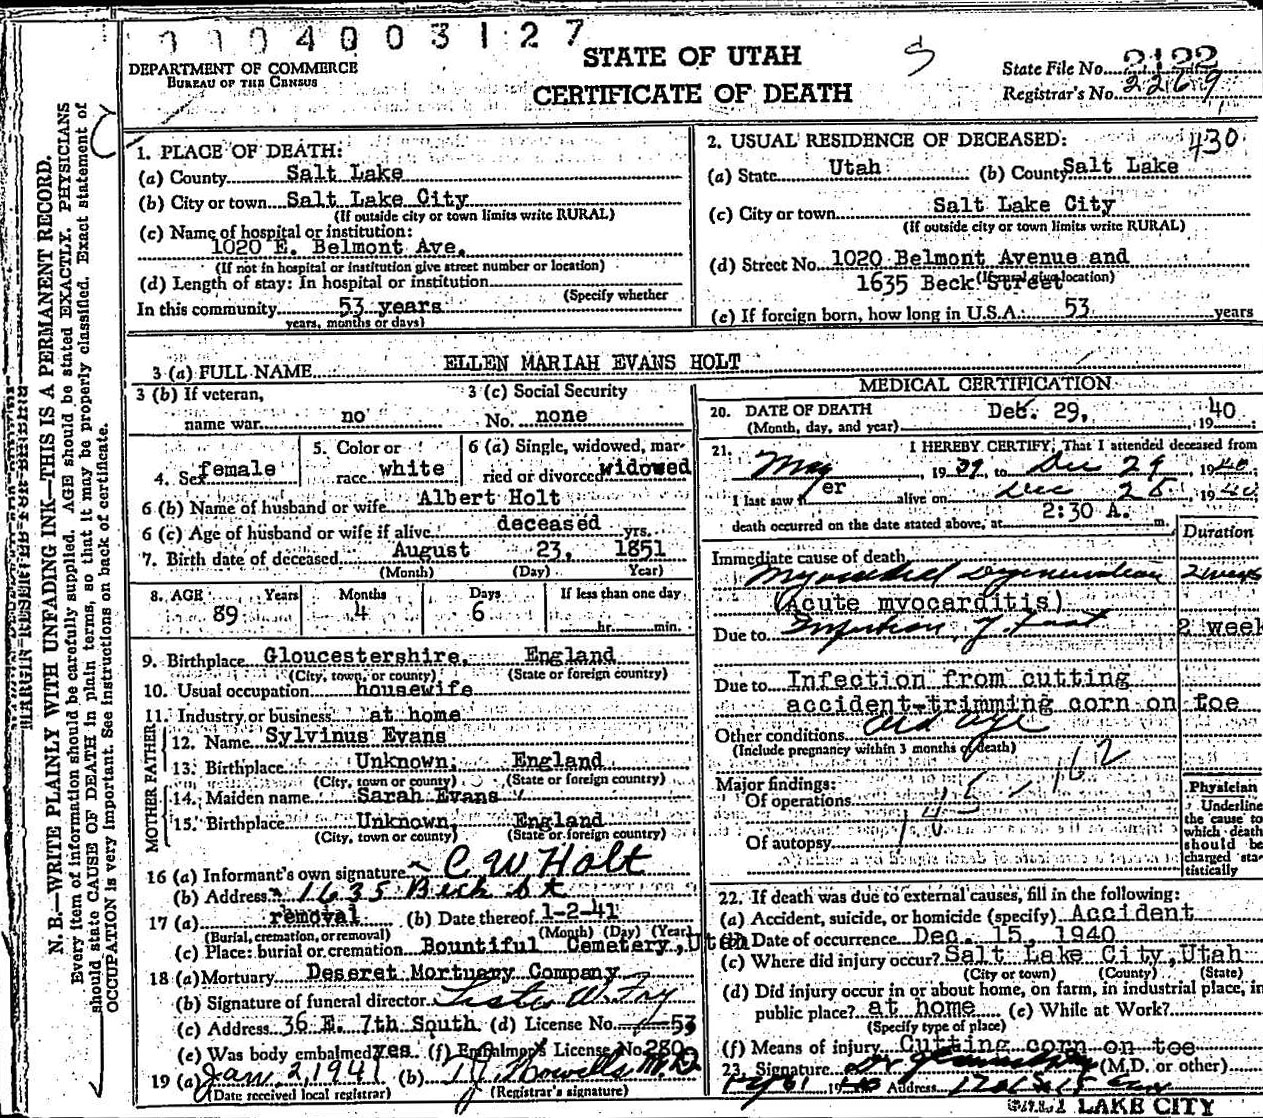 0004003127
DEPARTMENT OF COMMERCE
BUREAU OF THE CENSUS
STATE OF UTAH
CERTIFICATE OF DEATH
S
State File No. 2122
Registrar's No. 2269
MARGIN RESERVED FOR BINDING
N. B.—WRITE PLAINLY WITH UNFADING INK—THIS IS A PERMANENT RECORD.
Every item of information should be carefully supplied. AGE should be stated EXACTLY. PHYSICIANS
should state CAUSE OF DEATH in plain terms, so that it may be properly classified. Exact statement of
OCCUPATION is very important. See instructions on back of certificate.
1. PLACE OF DEATH:
(a) County Salt Lake
(b) City or town Salt Lake City
(If outside city or town limits write RURAL)
(c) Name of hospital or institution:
1020 E. Belmont Ave.
(If not in hospital or institution give street number or location)
(d) Length of stay: In hospital or institution
(Specify whether
In this community 53 years
years, months or days)
2. USUAL RESIDENCE OF DECEASED: 430
(a) State Utah (b) County Salt Lake
(c) City or town Salt Lake City
(If outside city or town limits write RURAL)
(d) Street No. 1020 Belmont Avenue and
1635 Beck Street (If rural give location)
(e) If foreign born, how long in U.S.A.: 53 years
3 (a) FULL NAME ELLEN MARIAH EVANS HOLT
3 (b) If veteran,
name war no
3 (c) Social Security
No. none
4. Sex female
5. Color or
race white
6 (a) Single, widowed, mar-
ried or divorced widowed
6 (b) Name of husband or wife Albert Holt
6 (c) Age of husband or wife if alive deceased yrs.
7. Birth date of deceased August 23, 1851
(Month) (Day) Year)
8. AGE Years Months Days If less than one day
89 4 6 hr. min.
9. Birthplace Gloucestershire, England
(City, town, or county) (State or foreign country)
10. Usual occupation housewife
11. Industry or business at home
FATHER
12. Name Sylvinus Evans
13. Birthplace Unknown, England
(City, town or county) (State or foreign country)
MOTHER
14. Maiden name Sarah Evans
15. Birthplace Unknown, England
(City, town or county) (State or foreign country)
16 (a) Informant's own signature C W Holt
(b) Address 1635 Beck St
17 (a) removal (b) Date thereof 1-2-41
(Burial, cremation, or removal) (Month) (Day) (Year)
(c) Place: burial or cremation Bountiful Cemetery, Utah
18 (a) Mortuary Deseret Mortuary Company
(b) Signature of funeral director
(c) Address 36 E. 7th South (d) License No. 53
(e) Was body embalmed yes (f) Embalmer's License No. 280
19 (a) Jan 2, 1941 (b) T J Howells M.D.
(Date received local registrar) (Registrar's signature)
MEDICAL CERTIFICATION
20. DATE OF DEATH Dec. 29, 1940
(Month, day, and year)
21. I HEREBY CERTIFY, That I attended deceased from
May 1939, to Dec 29, 1940
I last saw her alive on Dec 28, 1940
death occurred on the date stated above, at 2:30 A. m.
Duration
Immediate cause of death
Myocardial Degeneration 2 weeks
(Acute myocarditis)
Due to Infection of foot 2 week
Due to Infection from cutting
accident-trimming corn on toe
Other conditions old age
(Include pregnancy within 3 months of death)
Major findings:
Of operations
Of autopsy
Physician
Underline
the cause to
which death
should be
charged sta-
tistically
22. If death was due to external causes, fill in the following:
(a) Accident, suicide, or homicide (specify) Accident
(b) Date of occurrence Dec. 15, 1940
(c) Where did injury occur? Salt Lake City, Utah
(City or town) (County) (State)
(d) Did injury occur in or about home, on farm, in industrial place, in
public place? at home (e) While at Work?
(Specify type of place)
(f) Means of injury Cutting corn on toe
23. Signature (M.D. or other)
Address
SALT LAKE CITY